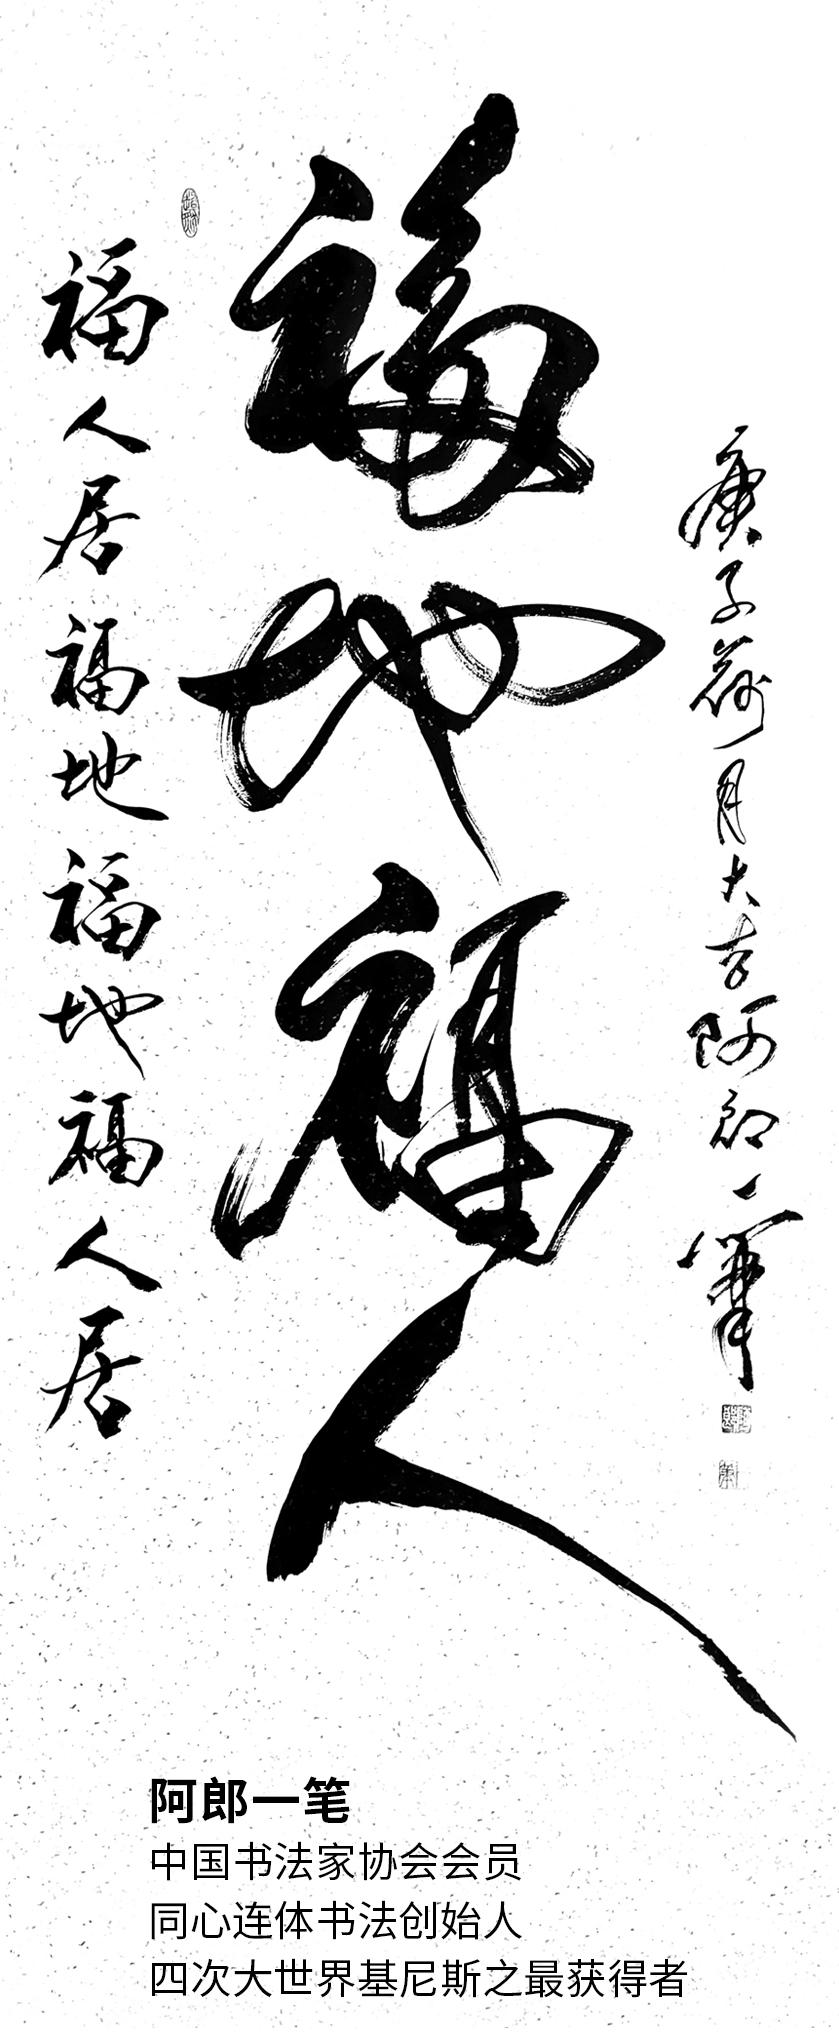 福地福人
福人居福地福地福人居
庚子荷月大吉阿郎一笔
阿郎一笔
中国书法家协会会员
同心连体书法创始人
四次大世界基尼斯之最获得者